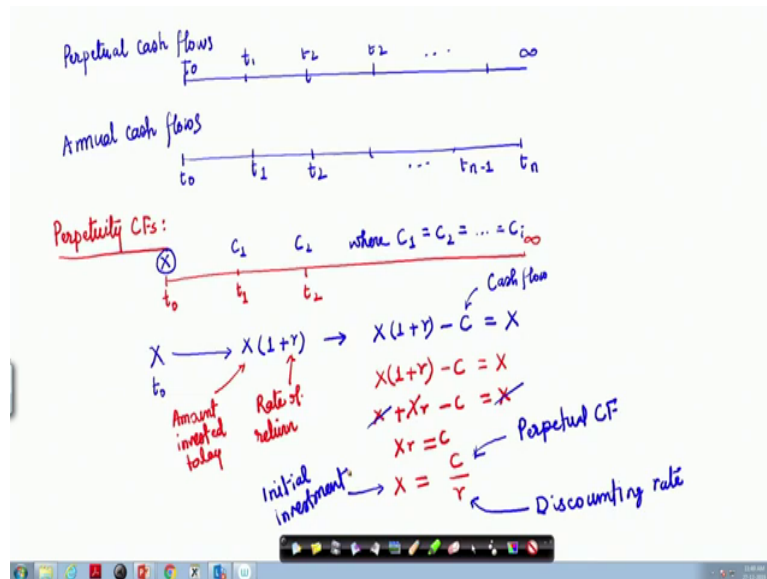 Perpetual cash flows
t0 t1 t2 t2 ... ∞
Annual cash flows
t0 t1 t2 ... tn-1 tn
Perpetuity CFs:
X C1 C2 where C1 = C2 = ... = Ci ∞
t0 t1 t2
Cash flow
X → X(1+r) → X(1+r) - C = X
t0
X(1+r) - C = X
Amount invested today
Rate of return
X + Xr - C = X
Xr = C
Perpetual CF
Initial investment → X = C/r
Discounting rate